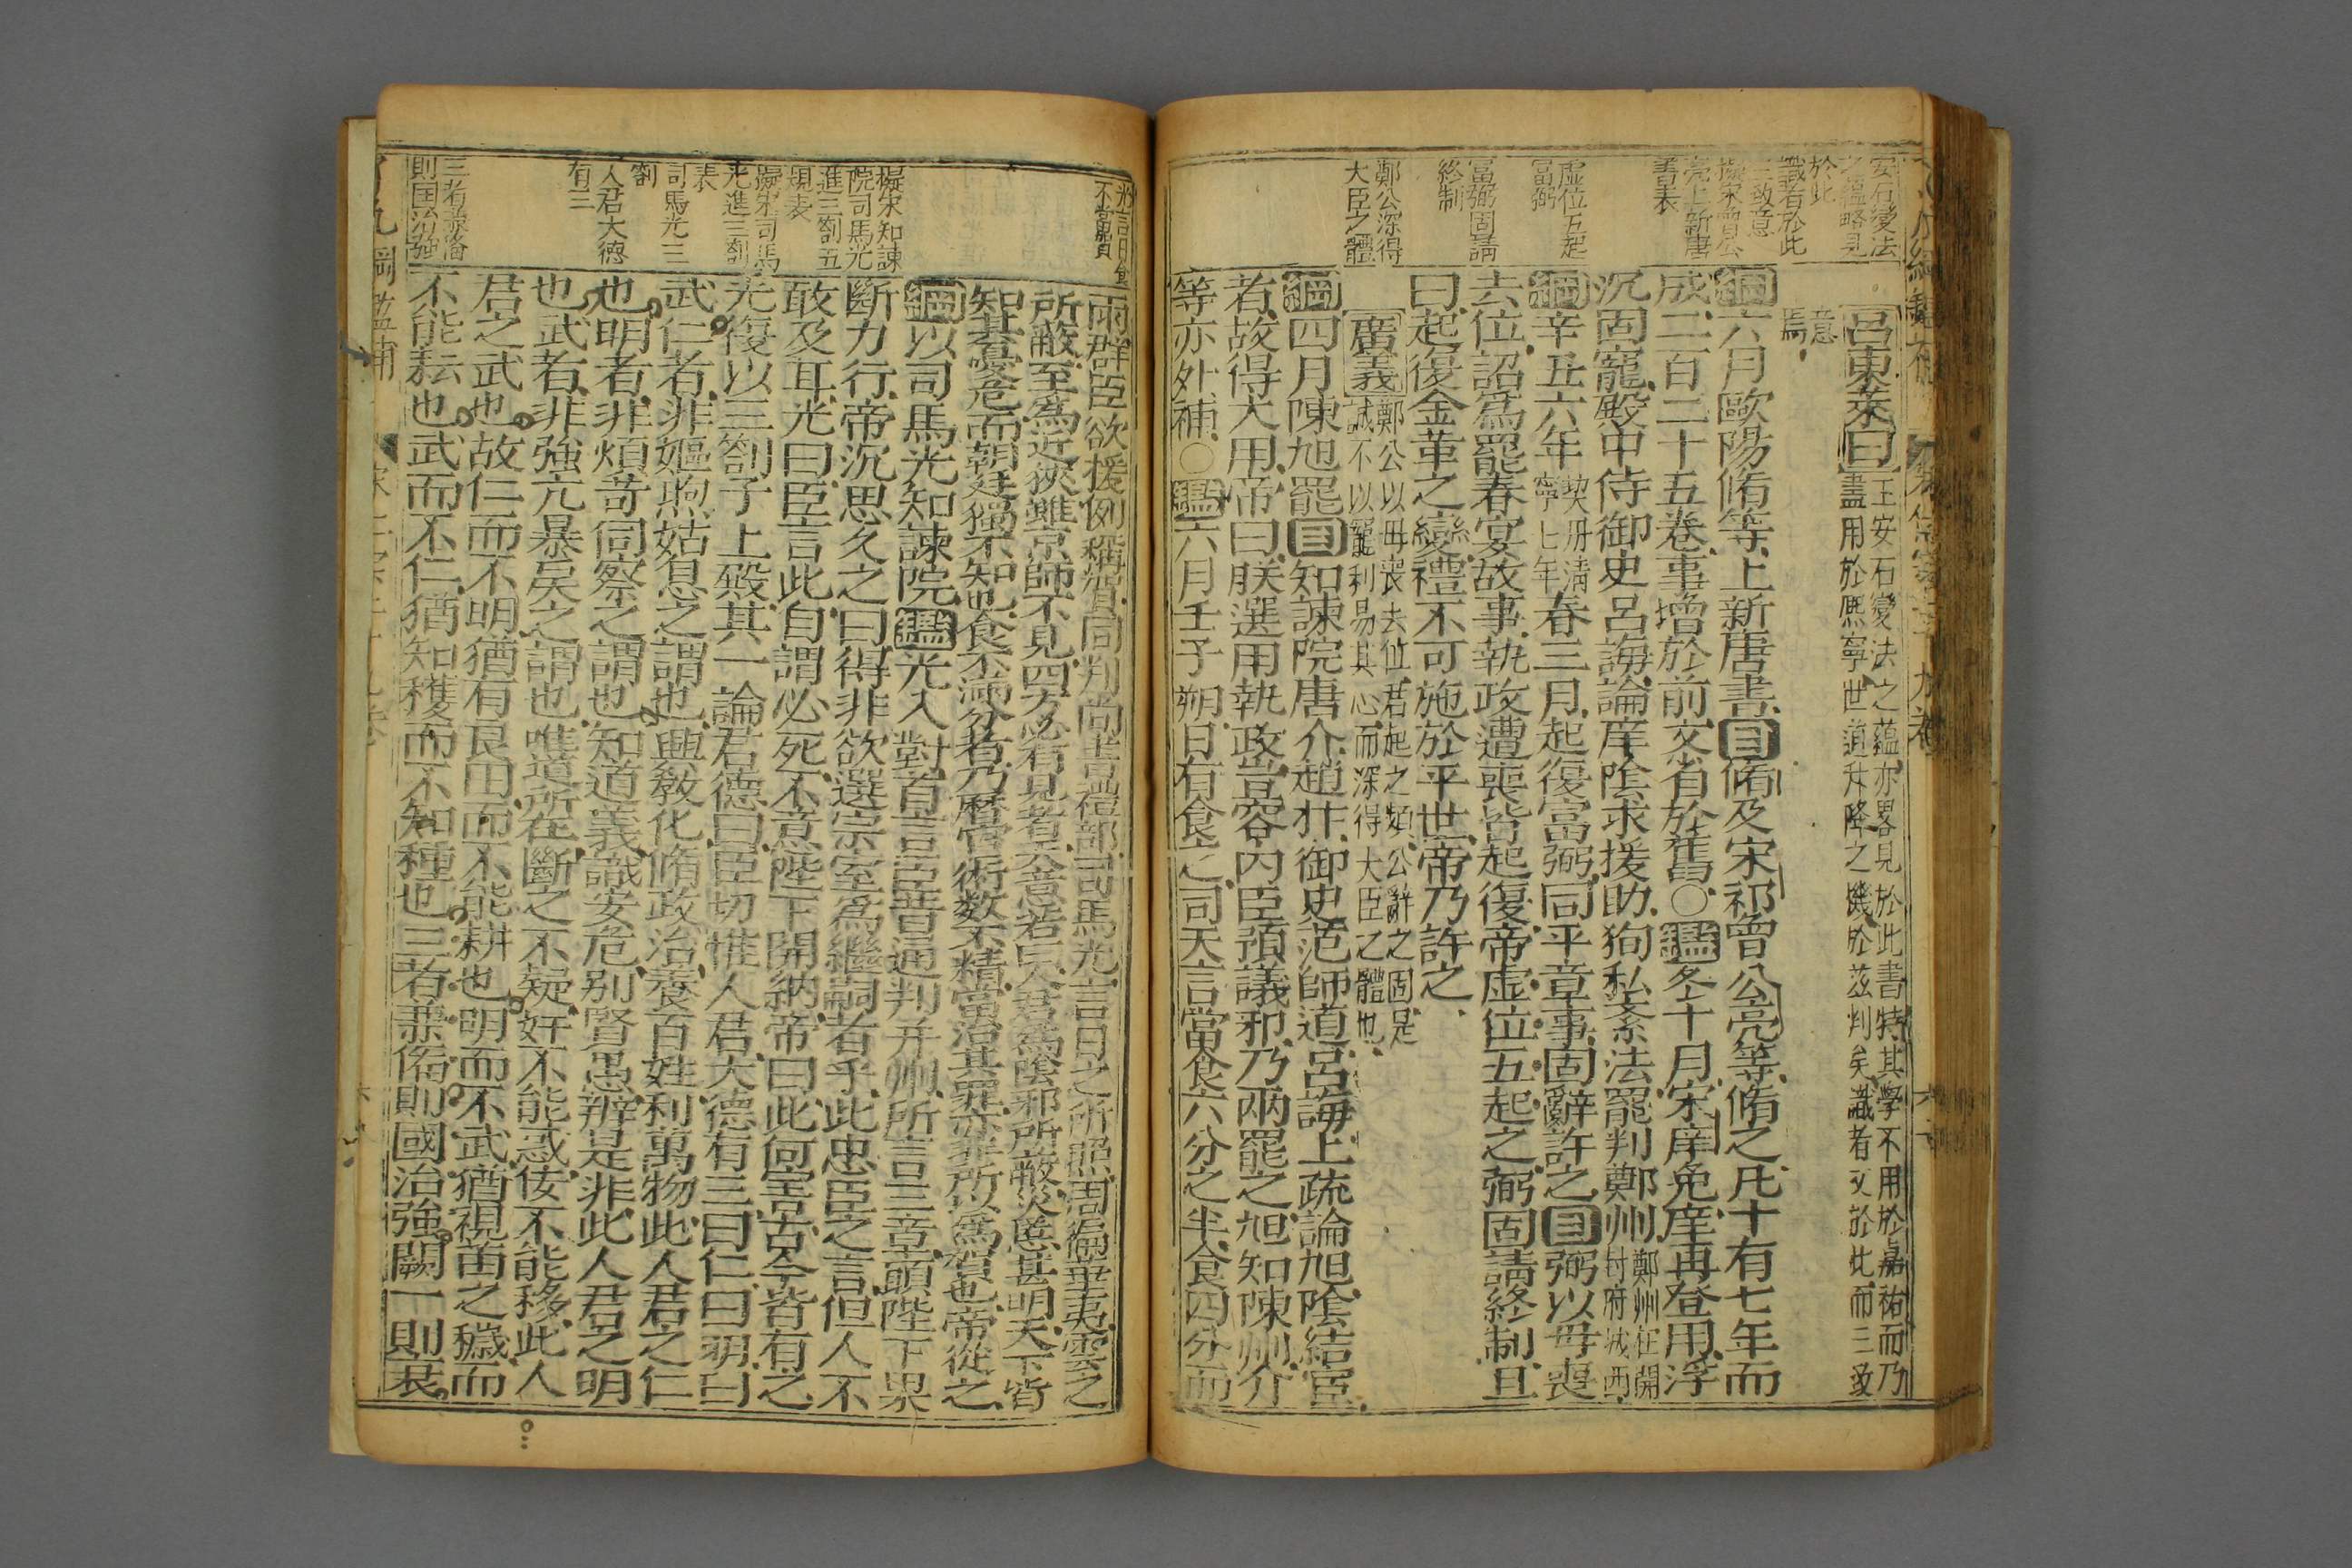 安石變法
之蘊略見
於此
識者於此
三致意
擬宋曾公
亮上新唐
書表
虛位五起
富弼
富弼固請
終制
鄭公深得
大臣之體
呂東萊曰
王安石變法之蘊亦畧見於此書特其學不用於嘉祐而乃
盡用於熙寧世道升降之機於茲判矣識者又於此而三致
意
焉
綱六月歐陽脩等上新唐書目脩及宋祁曾公亮等脩之凡十有七年而
成二百二十五卷事增於前文省於舊〇鑑冬十月宋庠免庠再登用浮
沉固寵殿中侍御史呂誨論庠陰求援助狥私紊法罷判鄭州
鄭州在開
封府城西
綱辛丑六年
契丹清
寧七年
春三月起復富弼同平章事固辭許之目弼以母喪
去位詔爲罷春宴故事執政遭喪皆起復帝虛位五起之弼固請終制且
曰起復金革之變禮不可施於平世帝乃許之
廣義
鄭公以母喪去位君起之頻公辭之固是
誠不以寵利易其心而深得大臣之體也
綱四月陳旭罷目知諫院唐介趙抃御史范師道呂誨上疏論旭陰結宦
者故得大用帝曰朕選用執政豈容內臣預議邪乃兩罷之旭知陳州介
等亦外補〇鑑六月壬子朔日有食之司天言當食六分之半食四分而
不當賀
擬宋知諫
院司馬光
進三劄五
規表
擬宋司馬
光進三劄
表
司馬光三
劄
人君大德
有三
三者兼備
則国治強
雨群臣欲援例稱賀同判尚書禮部司馬光言日之所照周徧華夷雲之
所蔽至爲近狹雖京師不見四方必有見者天意若曰人君爲陰邪所蔽災慝甚明天下皆
知其憂危而朝廷獨不知也食不滿分者乃曆官術数不精當治其罪亦非所以爲賀也帝從之
綱以司馬光知諫院鑑光入對首言臣昔通判并州所言三章願陛下果
斷力行帝沉思久之曰得非欲選宗室爲繼嗣者乎此忠臣之言但人不
敢及耳光曰臣言此自謂必死不意陛下開納帝曰此何害古今皆有之
光復以三劄子上殿其一論君德曰臣切惟人君大德有三曰仁曰明曰
武仁者非嫗煦姑息之謂也興敎化脩政治養百姓利萬物此人君之仁
也明者非煩苛伺察之謂也知道義識安危別賢愚辨是非此人君之明
也武者非強亢暴戾之謂也唯道所在斷之不疑奸不能惑佞不能移此人
君之武也故仁而不明猶有良田而不能耕也明而不武猶視苗之穢而
不能耘也武而不仁猶知穫而不知種也三者兼俻則國治強闕一則衰